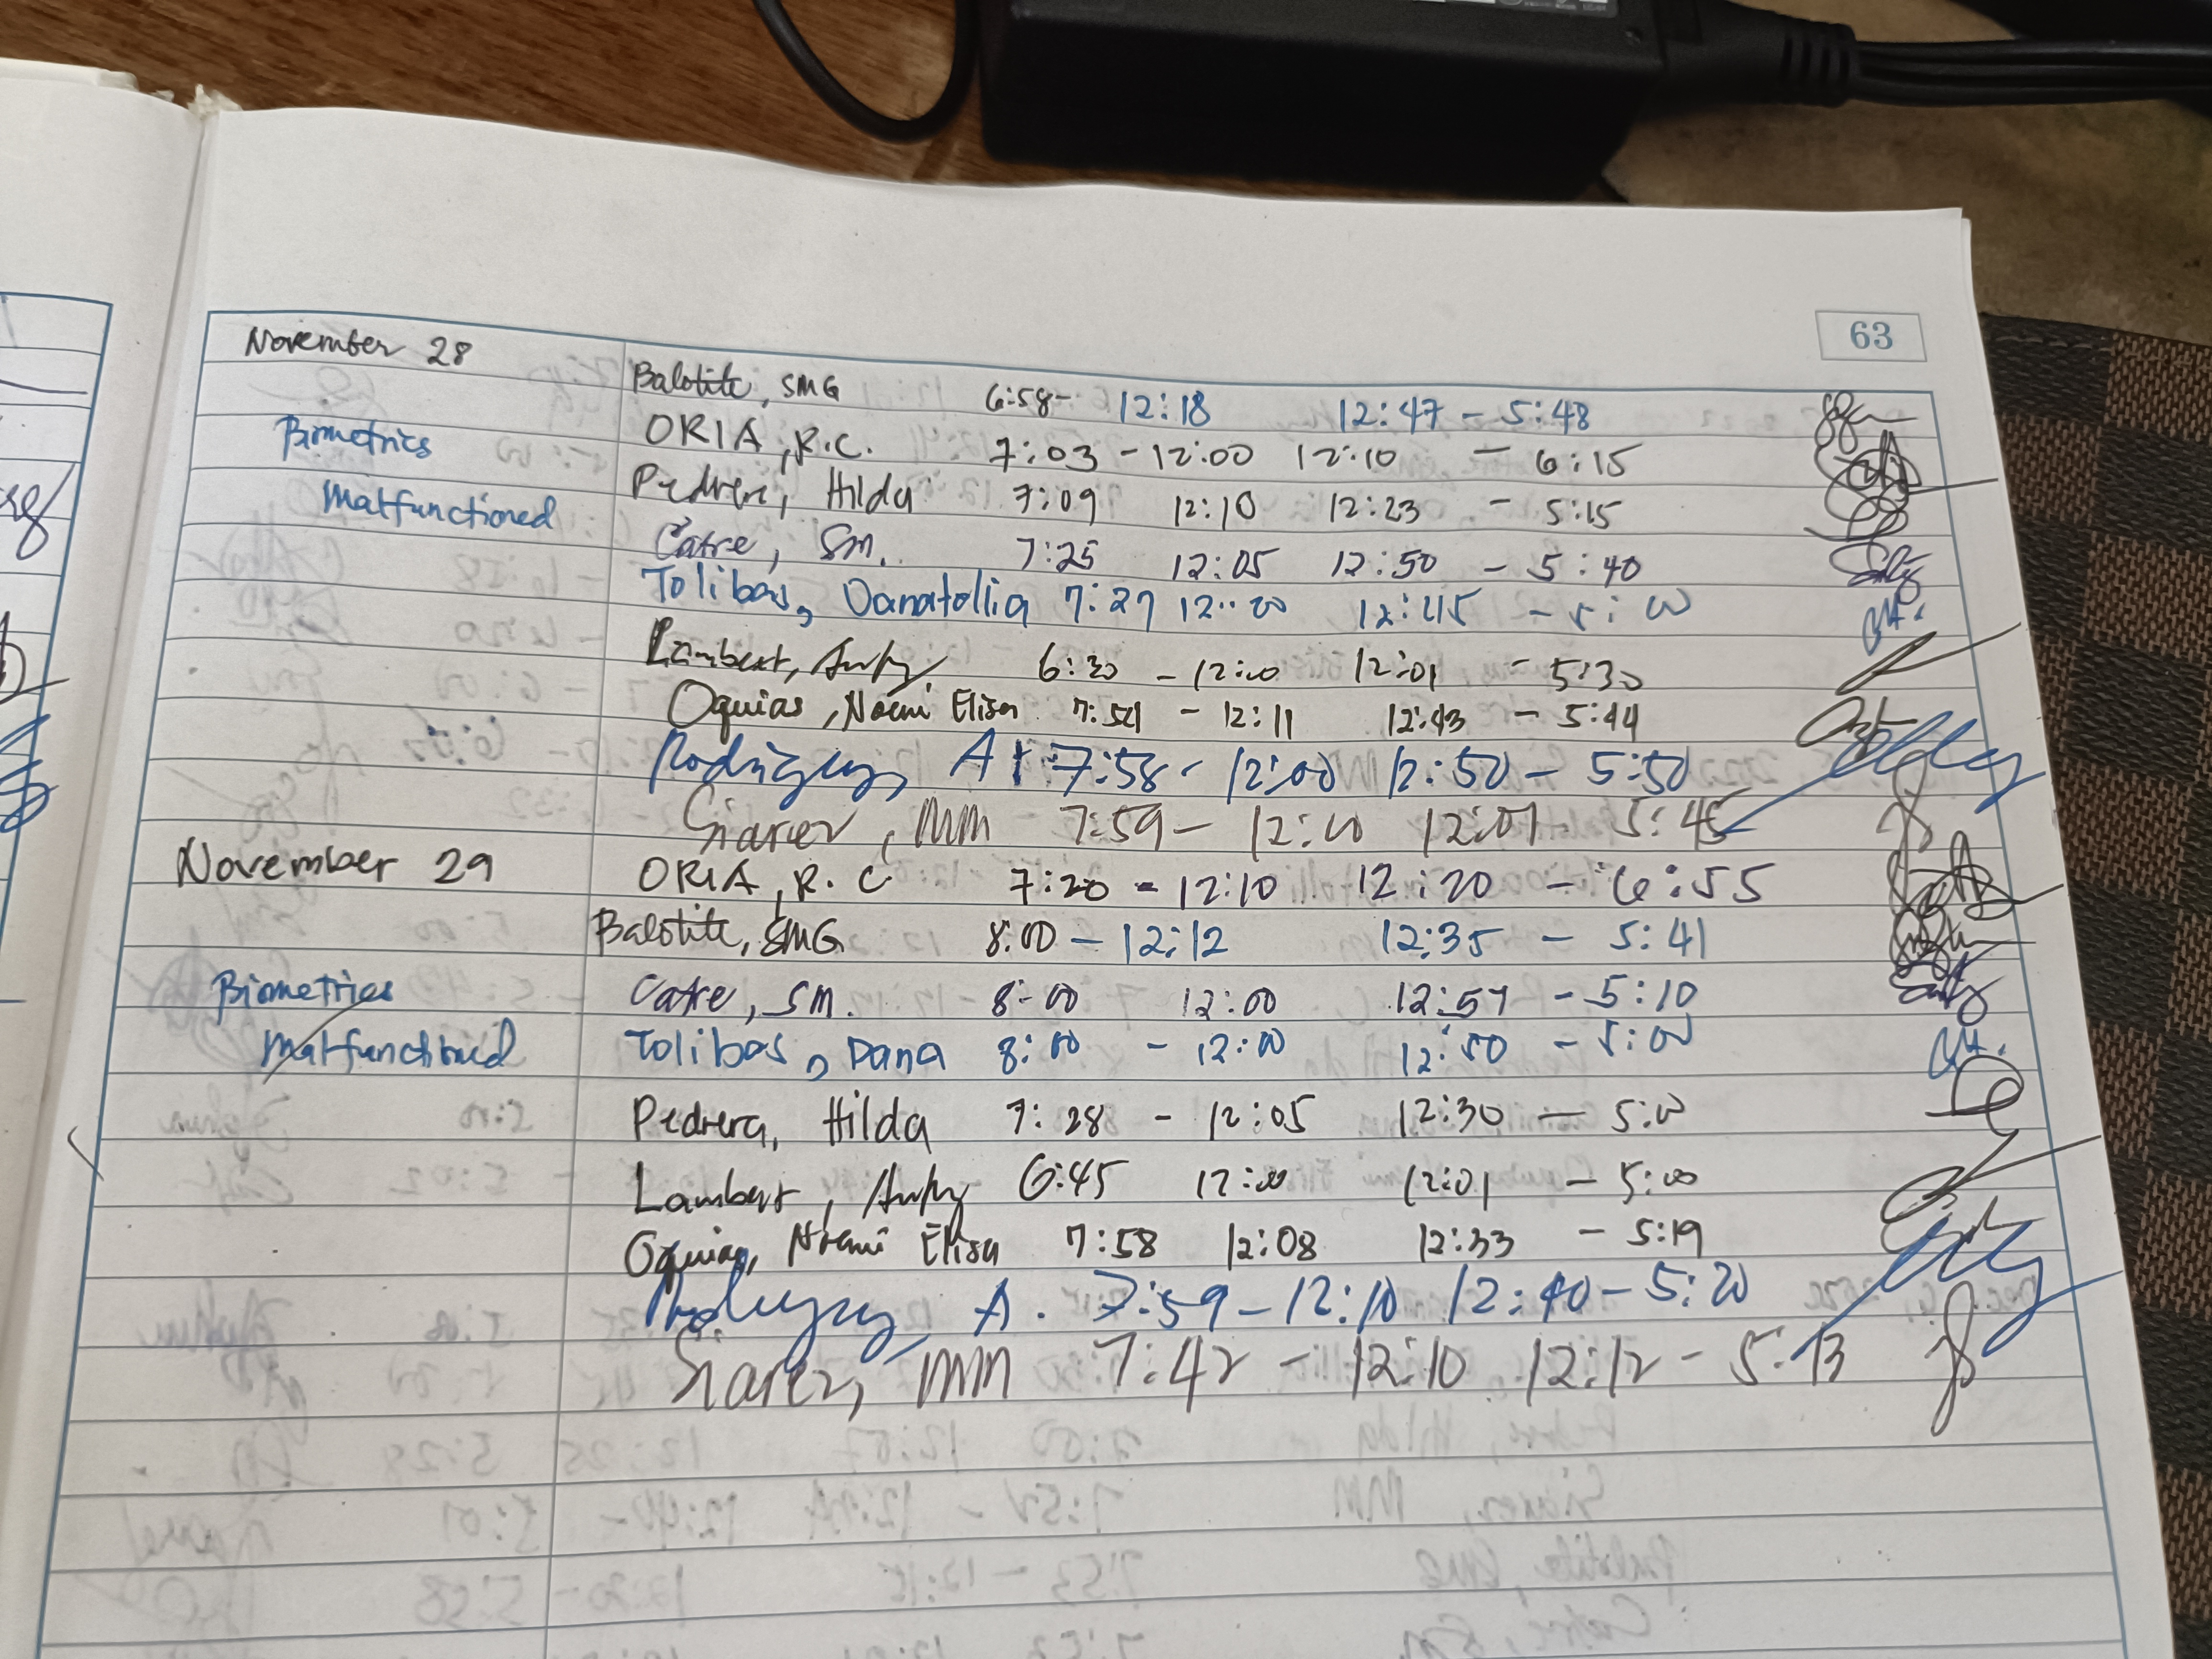 63
November 28
Balotite, SMG 6:58- 12:18 12:47 - 5:48
Biometrics
ORIA, R.C. 7:03 - 12:00 12:10 - 6:15
Malfunctioned
Pedrera, Hilda 7:09 12:10 12:23 - 5:15
Catre, SM. 7:25 12:05 12:50 - 5:40
Tolibas, Danatollia 7:27 12:00 12:45 - 5:00
Lambert, 6:30 - 12:00 12:01 - 5:30
Oquias, Noemi Elisa 7:54 - 12:11 12:43 - 5:44
Rodriguez, A 7:58 - 12:00 12:50 - 5:50
Siarez, MM 7:59 - 12:00 12:01 5:45
November 29
ORIA, R.C 7:20 - 12:10 12:20 - 6:55
Balotite, SMG 8:00 - 12:12 12:35 - 5:41
Biometrics
Catre, SM. 8:00 12:00 12:57 - 5:10
Malfunctioned
Tolibas, Dana 8:00 - 12:00 12:50 - 5:00
Pedrera, Hilda 7:28 - 12:05 12:30 - 5:00
Lambert, 6:45 12:00 12:01 - 5:00
Oquias, Noemi Elisa 7:58 12:08 12:33 - 5:19
Rodriguez, A. 7:59 - 12:10 12:40 - 5:20
Siarez, MM 7:42 - 12:10 12:12 - 5:13